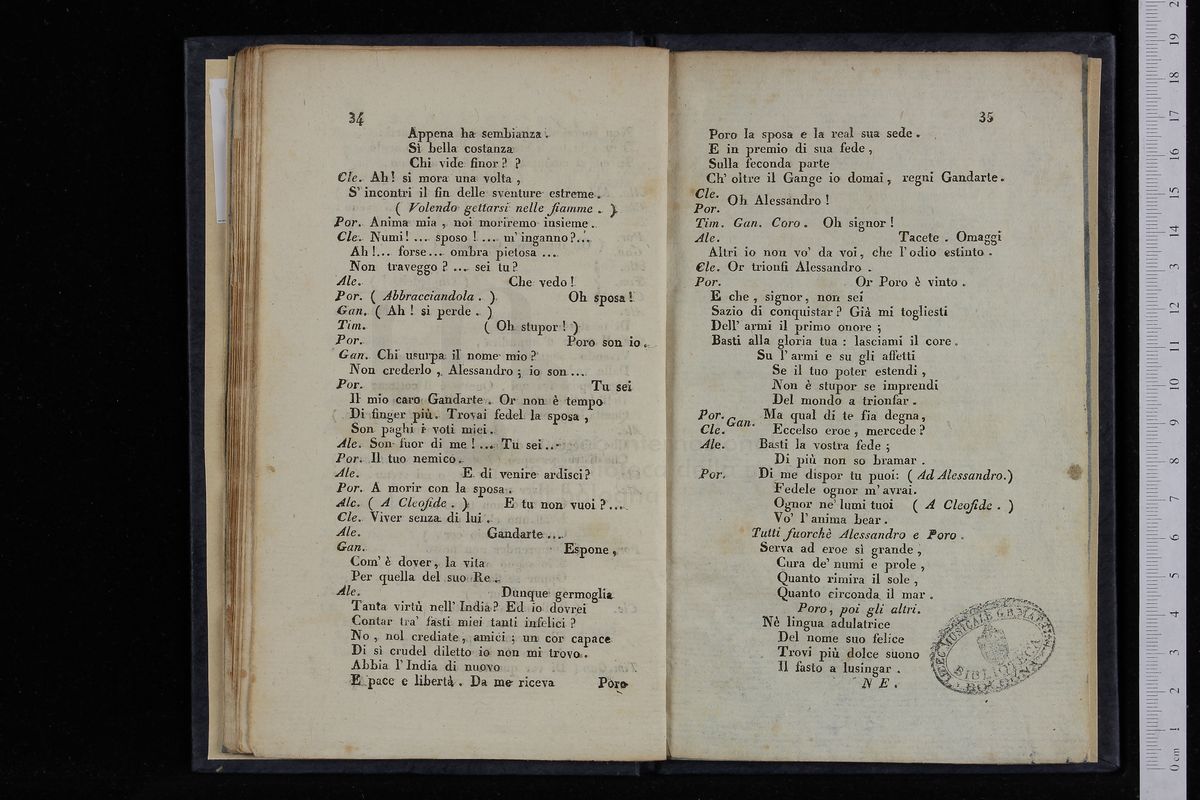 34
Appena ha sembianza .
Sì bella costanza
Chi vide finor ? ?
Cle. Ah! si mora una volta ,
S' incontri il fin delle sventure estreme .
( Volendo gettarsi nelle fiamme . )
Por. Anima mia , noi moriremo insieme .
Cle. Numi! .... sposo ! .... m' inganno ?...
Ah !... forse... ombra pietosa ....
Non traveggo ? .... sei tu ?
Ale. Che vedo !
Por. ( Abbracciandola . ) Oh sposa !
Gan. ( Ah ! si perde . )
Tim. ( Oh stupor ! )
Por. Poro son io .
Gan. Chi usurpa il nome mio ?
Non crederlo , Alessandro ; io son ....
Por. Tu sei
Il mio caro Gandarte . Or non è tempo
Di finger più . Trovai fedel la sposa ,
Son paghi i voti miei .
Ale. Son fuor di me ! .... Tu sei ...
Por. Il tuo nemico .
Ale. E di venire ardisci ?
Por. A morir con la sposa .
Ale. ( A Cleofide . ) E tu non vuoi ? ....
Cle. Viver senza di lui .
Ale. Gandarte ....
Gan. Espone ,
Com' è dover , la vita
Per quella del suo Re .
Ale. Dunque germoglia
Tanta virtù nell' India ? Ed io dovrei
Contar tra' fasti miei tanti infelici ?
No , nol crediate , amici ; un cor capace
Di sì crudel diletto io non mi trovo .
Abbia l' India di nuovo
E pace e libertà . Da me riceva
Poro
35
Poro la sposa e la real sua sede .
E in premio di sua fede ,
Sulla feconda parte
Ch' oltre il Gange io domai , regni Gandarte .
Cle.
Por. Oh Alessandro !
Tim. Gan. Coro . Oh signor !
Ale. Tacete . Omaggi
Altri io non vo' da voi , che l' odio estinto .
Cle. Or trionfi Alessandro .
Por. Or Poro è vinto .
E che , signor , non sei
Sazio di conquistar ? Già mi togliesti
Dell' armi il primo onore ;
Basti alla gloria tua : lasciami il core .
Su l' armi e su gli affetti
Se il tuo poter estendi ,
Non è stupor se imprendi
Del mondo a trionfar .
Por. Gan. Ma qual di te fia degna ,
Cle. Eccelso eroe , mercede ?
Ale. Basti la vostra fede ;
Di più non so bramar .
Por. Di me dispor tu puoi : ( Ad Alessandro. )
Fedele ognor m' avrai .
Ognor ne' lumi tuoi ( A Cleofide . )
Vo' l' anima bear .
Tutti fuorchè Alessandro e Poro .
Serva ad eroe sì grande ,
Cura de' numi e prole ,
Quanto rimira il sole ,
Quanto circonda il mar .
Poro , poi gli altri .
Nè lingua adulatrice
Del nome suo felice
Trovi più dolce suono
Il fasto a lusingar .
N E .
MUSICALE G.B. MARTINI
BIBLIOTECA
BOLOGNA
0 cm 1 2 3 4 5 6 7 8 9 10 11 12 13 14 15 16 17 18 19